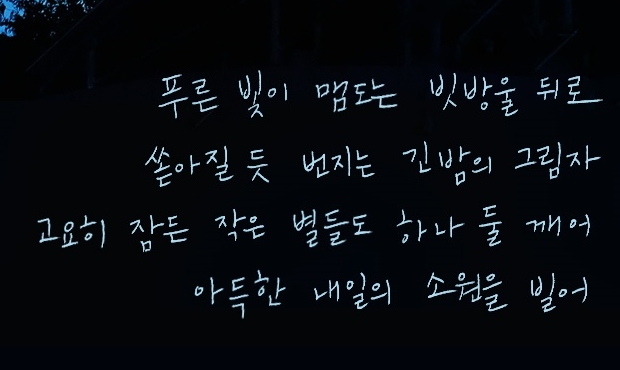 푸른 빛이 맴도는 빗방울 뒤로
쏟아질 듯 번지는 긴 밤의 그림자
고요히 잠든 작은 별들도 하나 둘 깨어
아득한 내일의 소원을 빌어